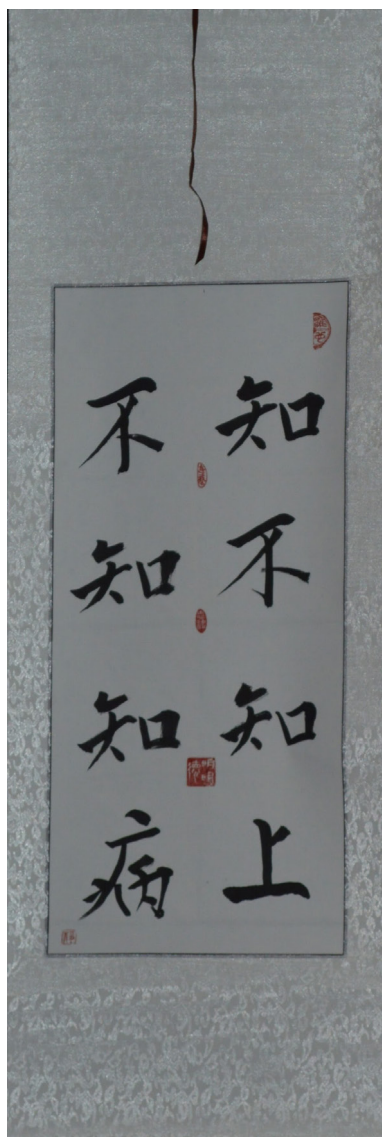 知不知上
不知知病